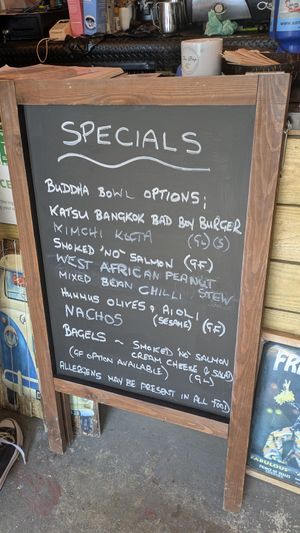 SPECIALS
BUDDHA BOWL OPTIONS;
KATSU BANGKOK BAD BOY BURGER
KIMCHI KEFTA (GL)(S)
SMOKED 'NO' SALMON (G.F)
WEST AFRICAN PEANUT STEW
MIXED BEAN CHILLI
HUMMUS OLIVES & AIOLI
NACHOS (SESAME) (G.F)
BAGELS ~ SMOKED 'NO' SALMON
CREAM CHEESE & SALAD
(GF OPTION AVAILABLE) (GL)
ALLERGENS MAY BE PRESENT IN ALL FOOD
FABULOUS